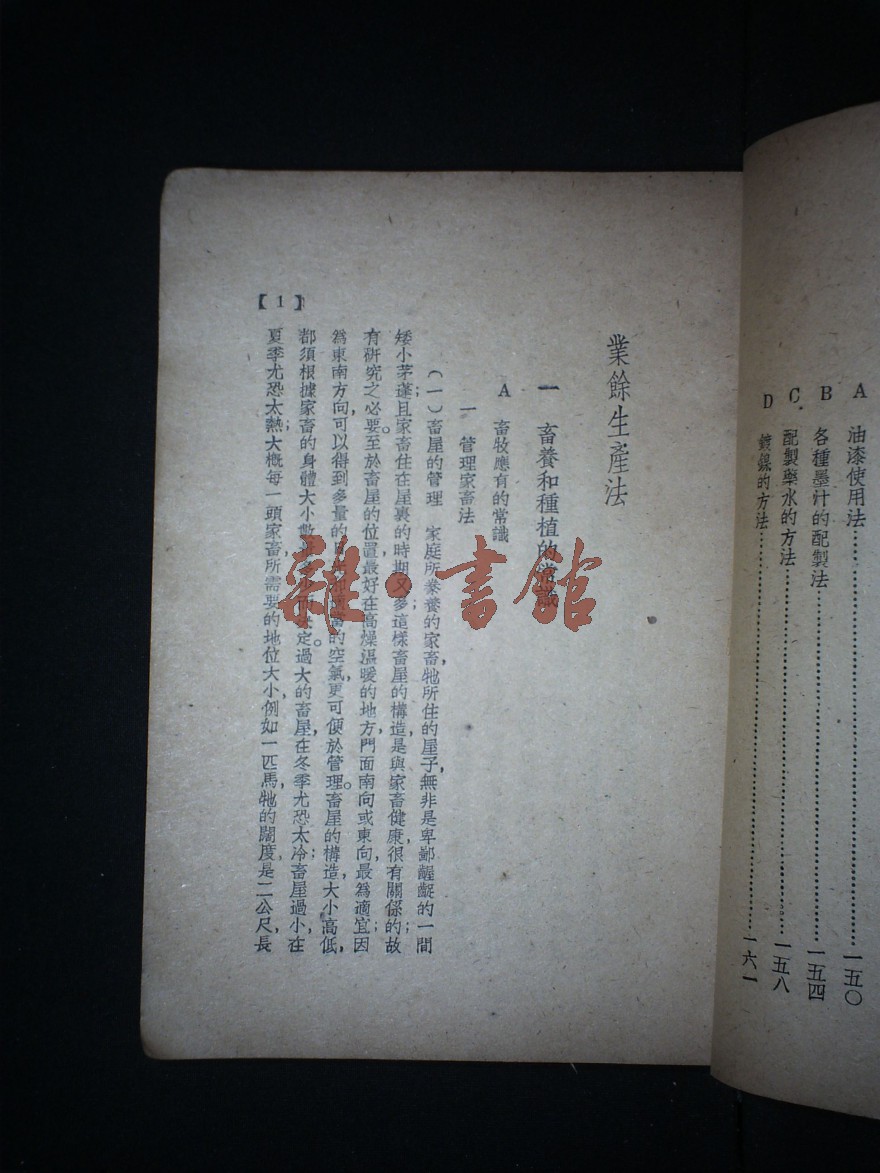 A 油漆使用法…………一五〇
B 各種墨汁的配製法…………一五四
C 配製藥水的方法…………一五八
D 鍍鎳的方法…………一六一
業餘生產法
一 畜養和種植的常識
A 畜牧應有的常識
一 管理家畜法
(一)畜屋的管理 家庭所豢養的家畜,牠所住的屋子,無非是卑鄙齷齪的一間
矮小茅蓬;且家畜住在屋裏的時期又多;這樣畜屋的構造,是與家畜健康很有關係的;故
有研究之必要。至於畜屋的位置,最好在高燥溫暖的地方,門面南向或東向,最爲適宜;因
爲東南方向,可以得到多量的的空氣,更可便於管理。畜屋的構造,大小高低,
都須根據家畜的身體大小數定。過大的畜屋,在冬季尤恐太冷;畜屋過小,在
夏季尤恐太熱;大概每一頭家畜,所需要的地位大小,例如一匹馬,牠的闊度是二公尺,長
【1】
雜·書館